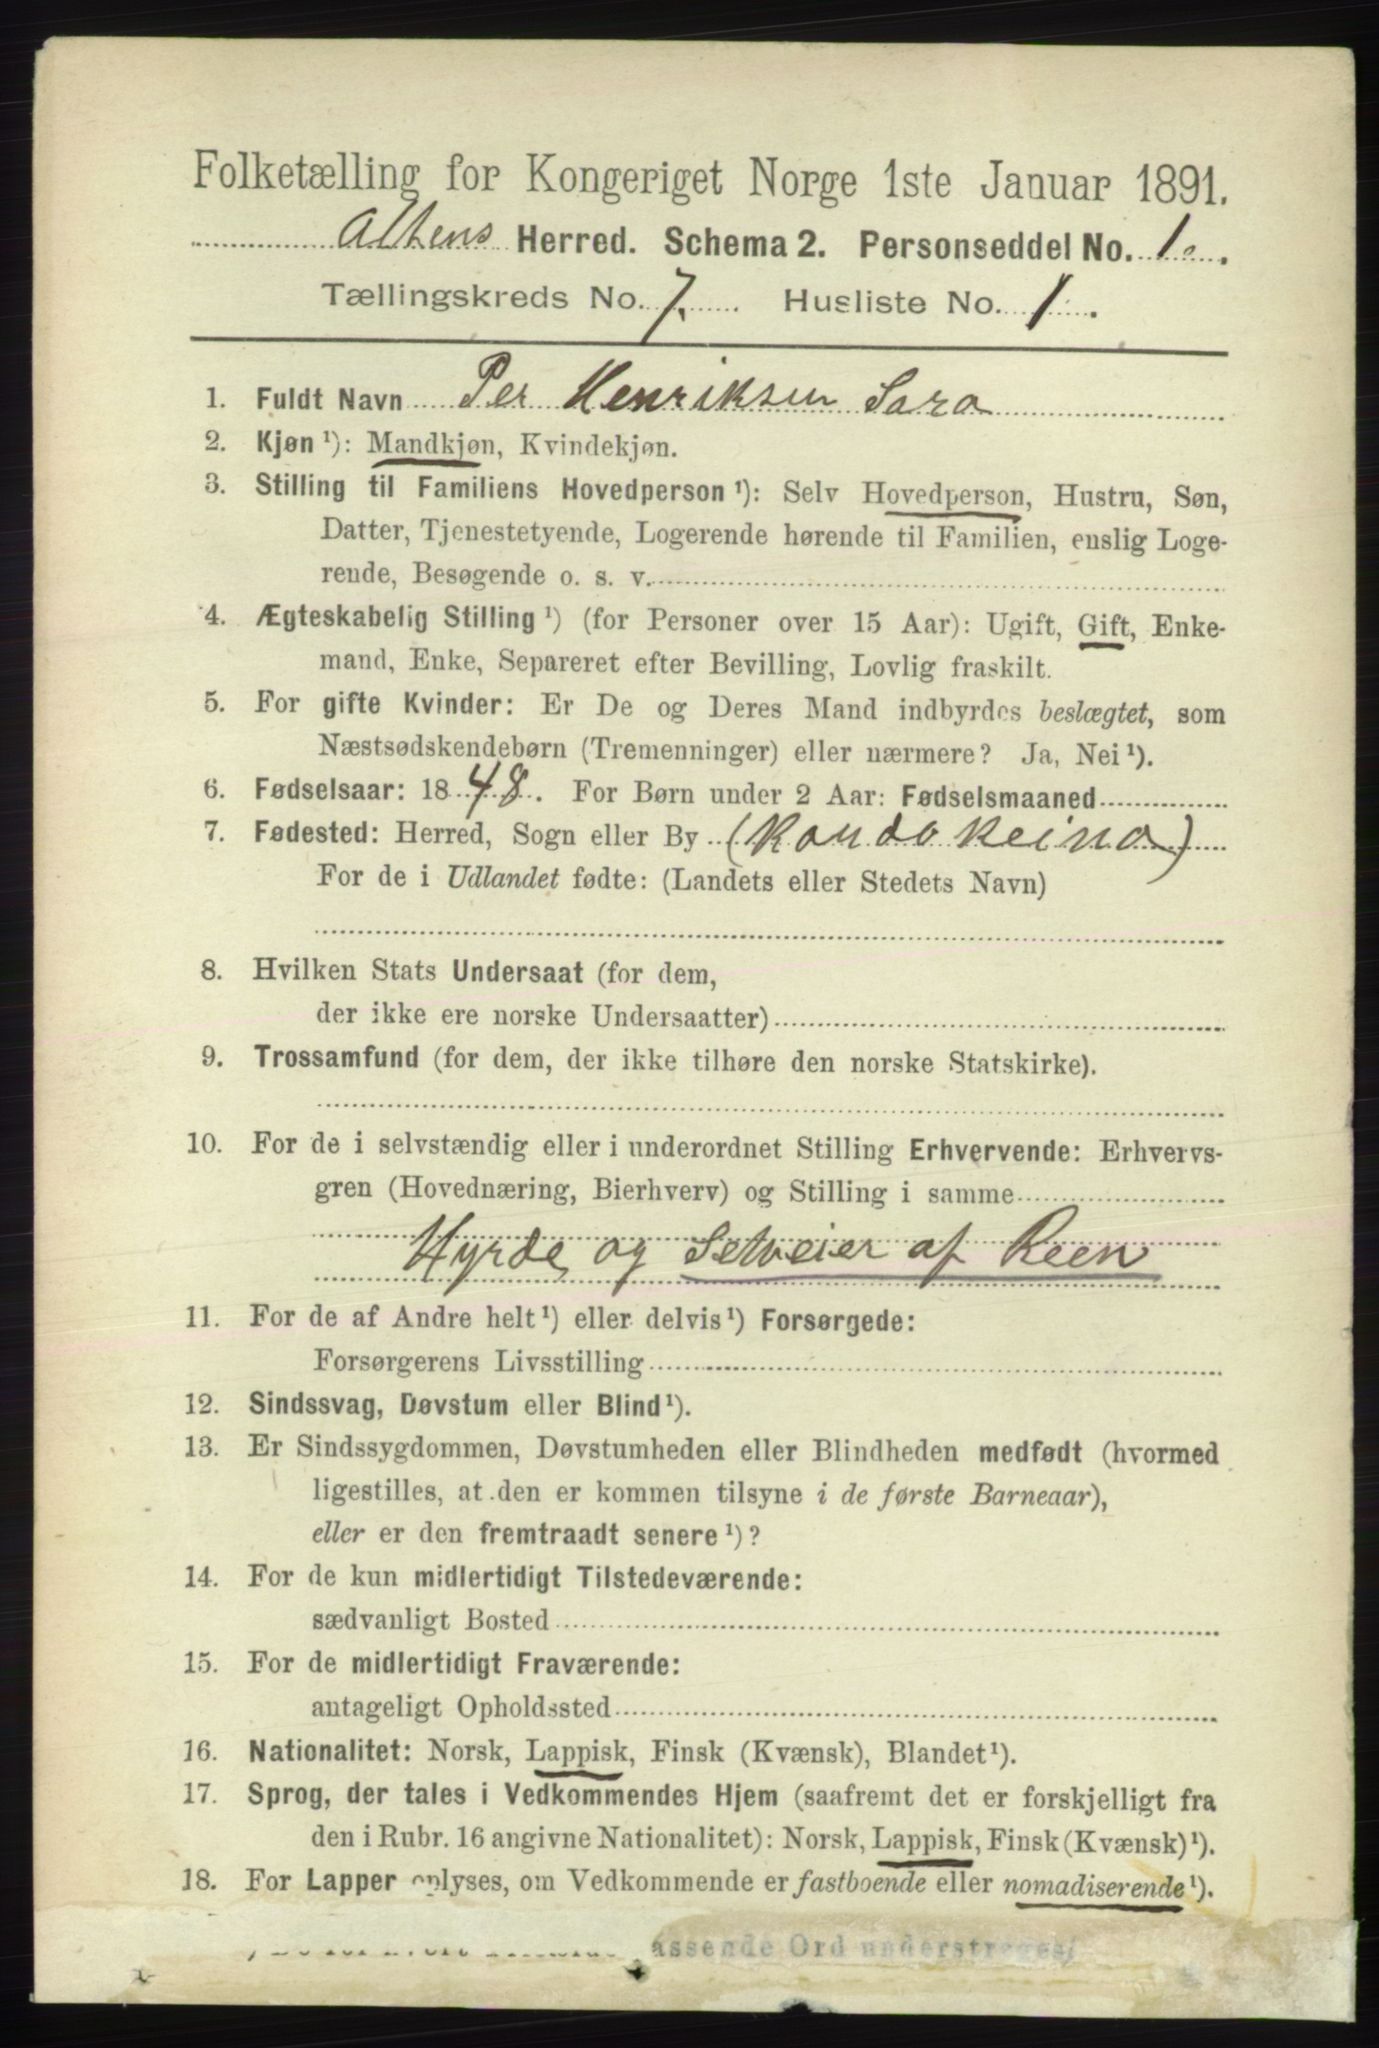 Folketælling for Kongeriget Norge 1ste Januar 1891.
Altens Herred. Schema 2. Personseddel No. 1.
Tællingskreds No. 7. Husliste No. 1.
1. Fuldt Navn Per Henriksen Sara
2. Kjøn ¹): Mandkjøn, Kvindekjøn.
3. Stilling til Familiens Hovedperson ¹): Selv Hovedperson, Hustru, Søn,
Datter, Tjenestetyende, Logerende hørende til Familien, enslig Loge-
rende, Besøgende o. s. v.
4. Ægteskabelig Stilling ¹) (for Personer over 15 Aar): Ugift, Gift, Enke-
mand, Enke, Separeret efter Bevilling, Lovlig fraskilt.
5. For gifte Kvinder: Er De og Deres Mand indbyrdes beslægtet, som
Næstsødskendebørn (Tremenninger) eller nærmere? Ja, Nei ¹).
6. Fødselsaar: 1848. For Børn under 2 Aar: Fødselsmaaned
7. Fødested: Herred, Sogn eller By (Koudokeino)
For de i Udlandet fødte: (Landets eller Stedets Navn)
8. Hvilken Stats Undersaat (for dem,
der ikke ere norske Undersaatter)
9. Trossamfund (for dem, der ikke tilhøre den norske Statskirke).
10. For de i selvstændig eller i underordnet Stilling Erhvervende: Erhvervs-
gren (Hovednæring, Bierhverv) og Stilling i samme
Hyrde og Selveier af Reen
11. For de af Andre helt ¹) eller delvis ¹) Forsørgede:
Forsørgerens Livsstilling
12. Sindssvag, Døvstum eller Blind ¹).
13. Er Sindssygdommen, Døvstumheden eller Blindheden medfødt (hvormed
ligestilles, at den er kommen tilsyne i de første Barneaar),
eller er den fremtraadt senere ¹)?
14. For de kun midlertidigt Tilstedeværende:
sædvanligt Bosted
15. For de midlertidigt Fraværende:
antageligt Opholdssted
16. Nationalitet: Norsk, Lappisk, Finsk (Kvænsk), Blandet ¹).
17. Sprog, der tales i Vedkommendes Hjem (saafremt det er forskjelligt fra
den i Rubr. 16 angivne Nationalitet): Norsk, Lappisk, Finsk (Kvænsk) ¹).
18. For Lapper oplyses, om Vedkommende er fastboende eller nomadiserende ¹).
assende Ord understreges